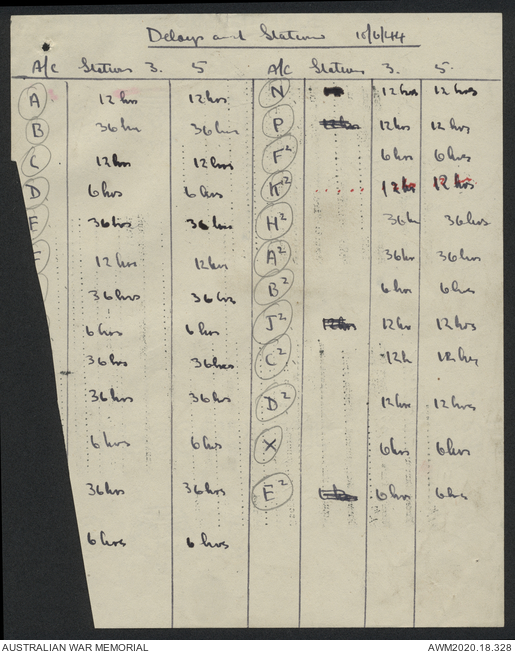 Delays and Stations 10/6/44
A/C Stations 3. 5 A/C Stations 3. 5.
A 12 hrs 12 hrs N 12 hrs 12 hrs
B 36 hrs 36 hrs P 12 hrs 12 hrs 12 hrs
C 12 hrs 12 hrs F² 6 hrs 6 hrs
D 6 hrs 6 hrs K² 12 hrs 12 hrs
E 36 hrs 36 hrs H² 36 hrs 36 hrs
F 12 hrs 12 hrs A² 36 hrs 36 hrs
36 hrs 36 hrs B² 6 hrs 6 hrs
6 hrs 6 hrs J² 12 hrs 12 hrs 12 hrs
36 hrs 36 hrs C² 12 h 12 hrs
36 hrs 36 hrs D² 12 hrs 12 hrs
6 hrs 6 hrs X 6 hrs 6 hrs
36 hrs 36 hrs E² 6 hrs 6 hrs
6 hrs 6 hrs
AUSTRALIAN WAR MEMORIAL AWM2020.18.328